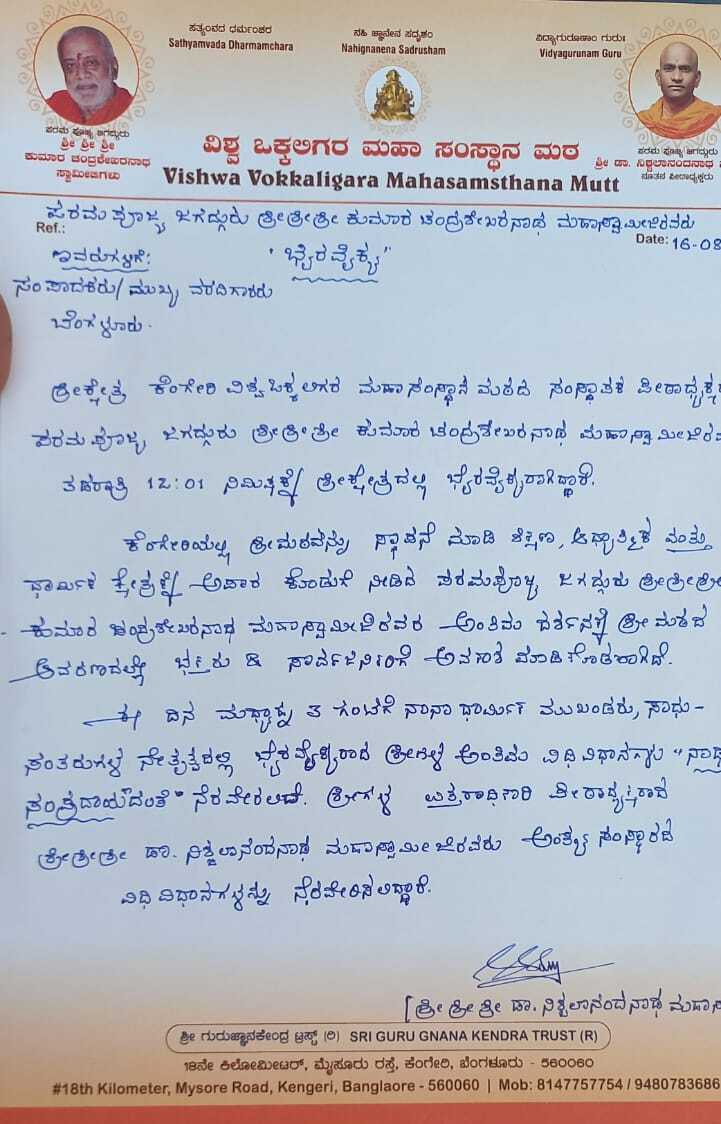 ಸತ್ಯಂವದ ಧರ್ಮಂಚರ
Sathyamvada Dharmamchara
ನಹಿ ಜ್ಞಾನೇನ ಸದೃಶಂ
Nahignanena Sadrusham
ವಿದ್ಯಾಗುರೂಣಾಂ ಗುರುಃ
Vidyagurunam Guru
ಪರಮ ಪೂಜ್ಯ ಜಗದ್ಗುರು
ಶ್ರೀ ಶ್ರೀ ಶ್ರೀ
ಕುಮಾರ ಚಂದ್ರಶೇಖರನಾಥ
ಸ್ವಾಮೀಜಿಗಳು
ವಿಶ್ವ ಒಕ್ಕಲಿಗರ ಮಹಾ ಸಂಸ್ಥಾನ ಮಠ
Vishwa Vokkaligara Mahasamsthana Mutt
ಪರಮ ಪೂಜ್ಯ ಜಗದ್ಗುರು
ಶ್ರೀ ಡಾ. ನಿಶ್ಚಲಾನಂದನಾಥ
ನೂತನ ಪೀಠಾಧ್ಯಕ್ಷರು
ಪರಮ ಪೂಜ್ಯ ಜಗದ್ಗುರು ಶ್ರೀಶ್ರೀಶ್ರೀ ಕುಮಾರ ಚಂದ್ರಶೇಖರನಾಥ ಮಹಾಸ್ವಾಮೀಜಿರವರು
Ref.:
Date: 16-08
ಇವರುಗಳಿಗೆ: "ಭೈರವೈಕ್ಯ"
ಸಂಪಾದಕರು/ಮುಖ್ಯ ವರದಿಗಾರರು
ಬೆಂಗಳೂರು.
ಶ್ರೀಕ್ಷೇತ್ರ ಕೆಂಗೇರಿ ವಿಶ್ವ ಒಕ್ಕಲಿಗರ ಮಹಾಸಂಸ್ಥಾನ ಮಠದ ಸಂಸ್ಥಾಪಕ ಪೀಠಾಧ್ಯಕ್ಷ
ಪರಮ ಪೂಜ್ಯ ಜಗದ್ಗುರು ಶ್ರೀಶ್ರೀಶ್ರೀ ಕುಮಾರ ಚಂದ್ರಶೇಖರನಾಥ ಮಹಾಸ್ವಾಮೀಜಿರವ
ತಡರಾತ್ರಿ 12:01 ನಿಮಿಷಕ್ಕೆ ಶ್ರೀಕ್ಷೇತ್ರದಲ್ಲಿ ಭೈರವೈಕ್ಯರಾಗಿದ್ದಾರೆ.
ಕೆಂಗೇರಿಯಲ್ಲಿ ಶ್ರೀಮಠವನ್ನು ಸ್ಥಾಪನೆ ಮಾಡಿ ಶಿಕ್ಷಣ, ಆಧ್ಯಾತ್ಮಿಕ ಮತ್ತು
ಧಾರ್ಮಿಕ ಕ್ಷೇತ್ರಕ್ಕೆ ಅಪಾರ ಕೊಡುಗೆ ನೀಡಿದ ಪರಮಪೂಜ್ಯ ಜಗದ್ಗುರು ಶ್ರೀಶ್ರೀಶ್ರೀ
ಕುಮಾರ ಚಂದ್ರಶೇಖರನಾಥ ಮಹಾಸ್ವಾಮೀಜಿರವರ ಅಂತಿಮ ದರ್ಶನಕ್ಕೆ ಶ್ರೀ ಮಠದ
ಆವರಣದಲ್ಲೇ ಭಕ್ತರು & ಸಾರ್ವಜನಿಕರಿಗೆ ಅವಕಾಶ ಮಾಡಿಕೊಡಲಾಗಿದೆ.
ಈ ದಿನ ಮಧ್ಯಾಹ್ನ 3 ಗಂಟೆಗೆ ನಾನಾ ಧಾರ್ಮಿಕ ಮುಖಂಡರು, ಸಾಧು-
ಸಂತರುಗಳ ನೇತೃತ್ವದಲ್ಲಿ ಭೈರವೈಕ್ಯರಾದ ಶ್ರೀಗಳ ಅಂತಿಮ ವಿಧಿವಿಧಾನಗಳು "ನಾಥ
ಸಂಪ್ರದಾಯದಂತೆ" ನೆರವೇರಲಿದೆ. ಶ್ರೀಗಳ ಉತ್ತರಾಧಿಕಾರಿ ಪೀಠಾಧ್ಯಕ್ಷರಾದ
ಶ್ರೀಶ್ರೀಶ್ರೀ ಡಾ. ನಿಶ್ಚಲಾನಂದನಾಥ ಮಹಾಸ್ವಾಮೀಜಿರವರು ಅಂತ್ಯ ಸಂಸ್ಕಾರದ
ವಿಧಿವಿಧಾನಗಳನ್ನು ನೆರವೇರಿಸಲಿದ್ದಾರೆ.
[ಶ್ರೀ ಶ್ರೀ ಶ್ರೀ ಡಾ. ನಿಶ್ಚಲಾನಂದನಾಥ ಮಹಾಸ
ಶ್ರೀ ಗುರುಜ್ಞಾನಕೇಂದ್ರ ಟ್ರಸ್ಟ್ (ರಿ) SRI GURU GNANA KENDRA TRUST (R)
18ನೇ ಕಿಲೋಮೀಟರ್, ಮೈಸೂರು ರಸ್ತೆ, ಕೆಂಗೇರಿ, ಬೆಂಗಳೂರು - 560060
#18th Kilometer, Mysore Road, Kengeri, Banglaore - 560060 | Mob: 8147757754 / 9480783686